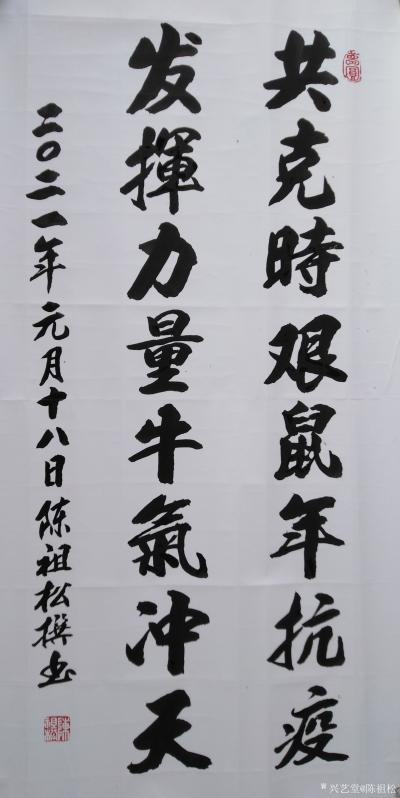 共克時艰鼠年抗疫
发揮力量牛氣冲天
二〇二一年元月十八日陈祖松撰书
陳祖松
兴艺堂@陈祖松